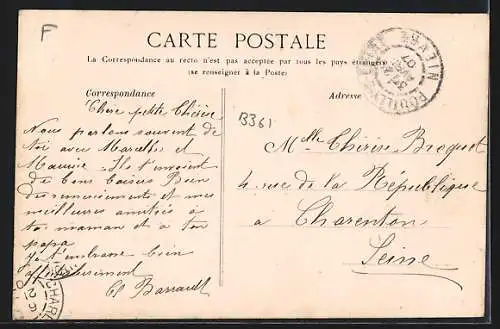 F
CARTE POSTALE
La Correspondance au recto n'est pas acceptée par tous les pays étrangers
(se renseigner à la Poste)
Correspondance
Adresse
B361
Chère petite
Nous parlons souvent de
toi avec Marcelle et
Maurice. Ils t'envoient
de bons baisers Bien
des remerciements et mes
meilleures amitiés à
ta maman et à ton
papa
Je t'embrasse bien
affectueusement
Cl Barrault
Mlle Broquet
4 rue de la République
a Charenton
Seine